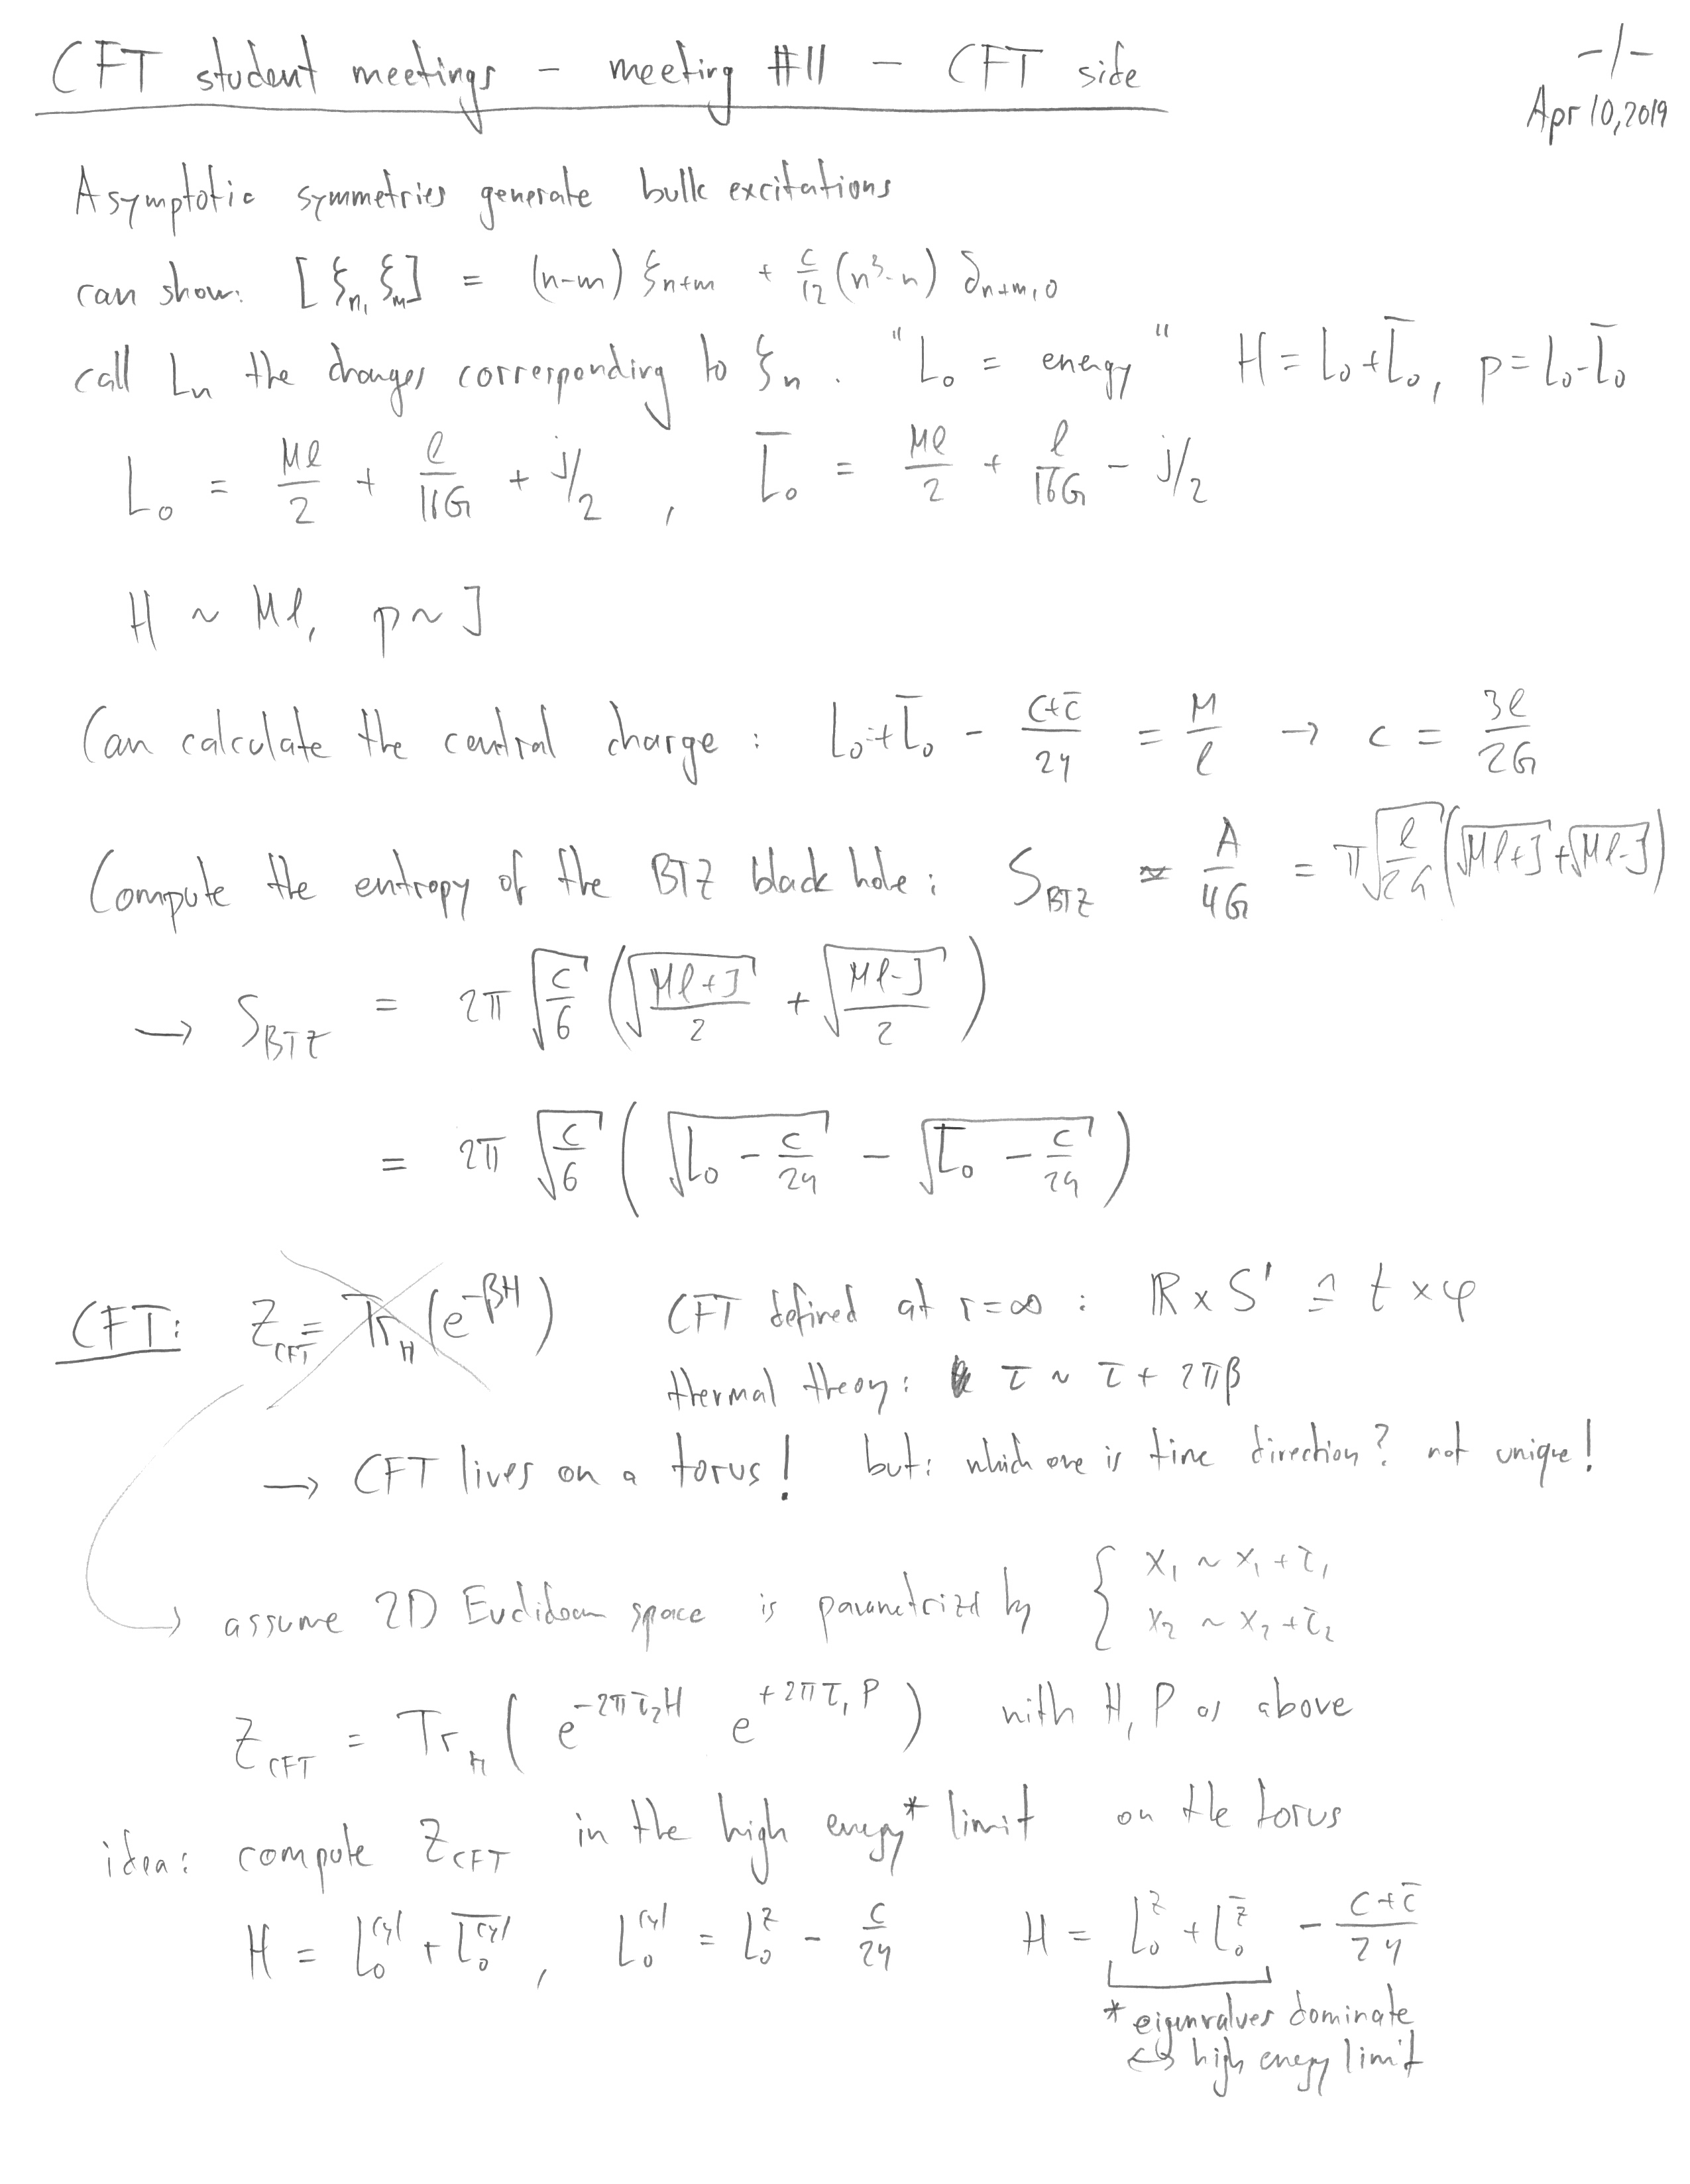 CFT student meetings - meeting #11 - CFT side
-/-
Apr 10, 2019
Asymptotic symmetries generate bulk excitations
can show: [ξ_n, ξ_m] = (n-m) ξ_{n+m} + c/12 (n³-n) δ_{n+m,0}
call L_n the charges corresponding to ξ_n. "L_0 = energy" H = L_0 + L̄_0, p = L_0 - L̄_0
L_0 = Mℓ/2 + ℓ/16G + j/2, L̄_0 = Mℓ/2 + ℓ/16G - j/2
H ~ Mℓ, p ~ J
Can calculate the central charge: L_0 + L̄_0 - (c+c̄)/24 = M/ℓ → c = 3ℓ/2G
Compute the entropy of the BTZ black hole: S_BTZ = A/4G = π √(ℓ/2G) (√(Mℓ+J) + √(Mℓ-J))
→ S_BTZ = 2π √(c/6) (√((Mℓ+J)/2) + √((Mℓ-J)/2))
= 2π √(c/6) (√(L_0 - c/24) - √(L̄_0 - c/24))
CFT: Z_CFT = Tr_H (e^{-βH}) CFT defined at r=∞ : ℝ × S¹ ≙ t × φ
thermal theory: τ ~ τ + 2πβ
→ CFT lives on a torus! but: which one is time direction? not unique!
assume 2D Euclidean space is parametrized by { x_1 ~ x_1 + τ_1
x_2 ~ x_2 + τ_2
Z_CFT = Tr_H ( e^{-2πτ_2H} e^{+2πτ_1P} ) with H, P as above
idea: compute Z_CFT in the high energy* limit on the torus
H = L_0^{cyl} + L̄_0^{cyl}, L_0^{cyl} = L_0^z - c/24 H = L_0^z + L_0^z̄ - (c+c̄)/24
* eigenvalues dominate
↔ high energy limit